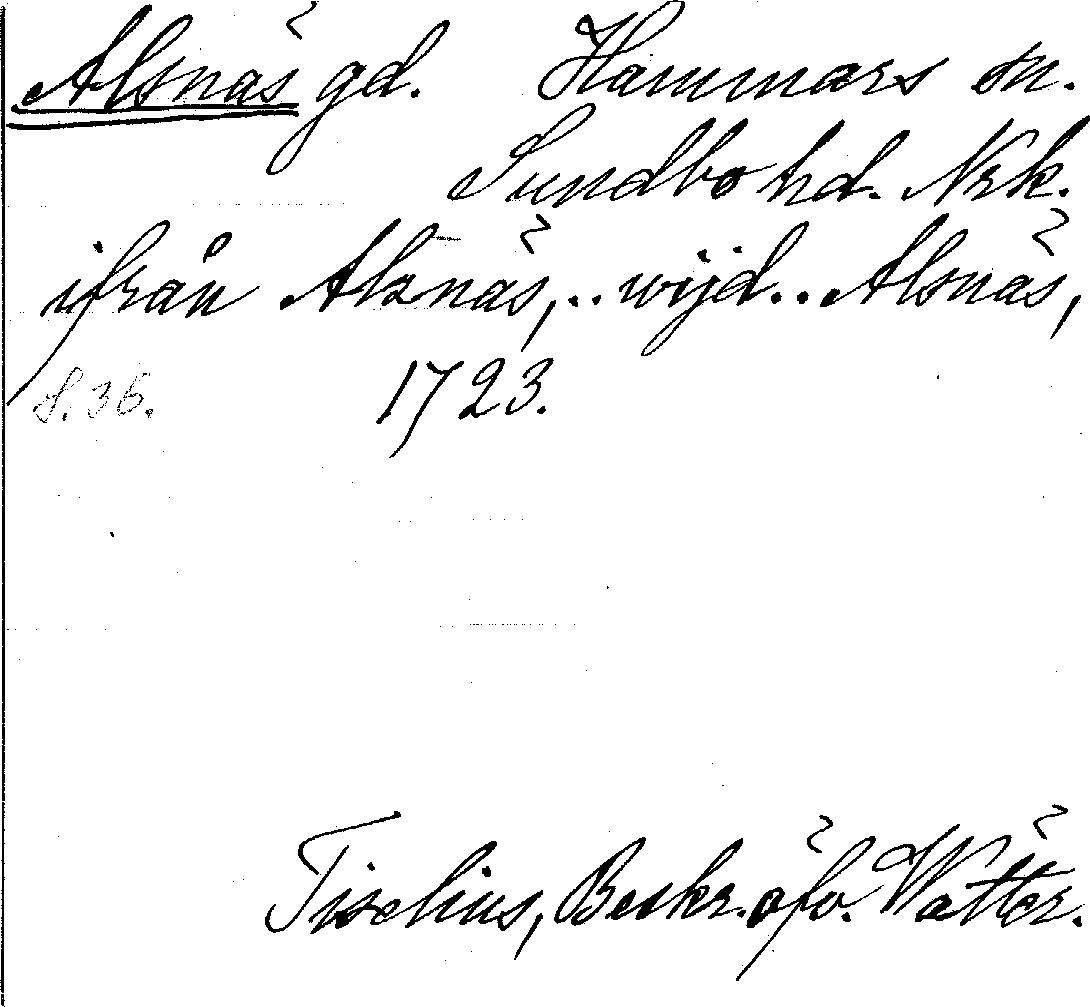 Alsnäs gd. Hammars sn.
Sundbo hd. Nrk.
ifrån Alsnäs,.. wijd.. Alsnäs,
S. 36. 1723.
Tiselius, Beskr. öfv. Wätter.